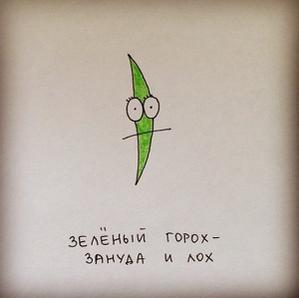 ЗЕЛЁНЫЙ ГОРОХ-
ЗАНУДА И ЛОХ